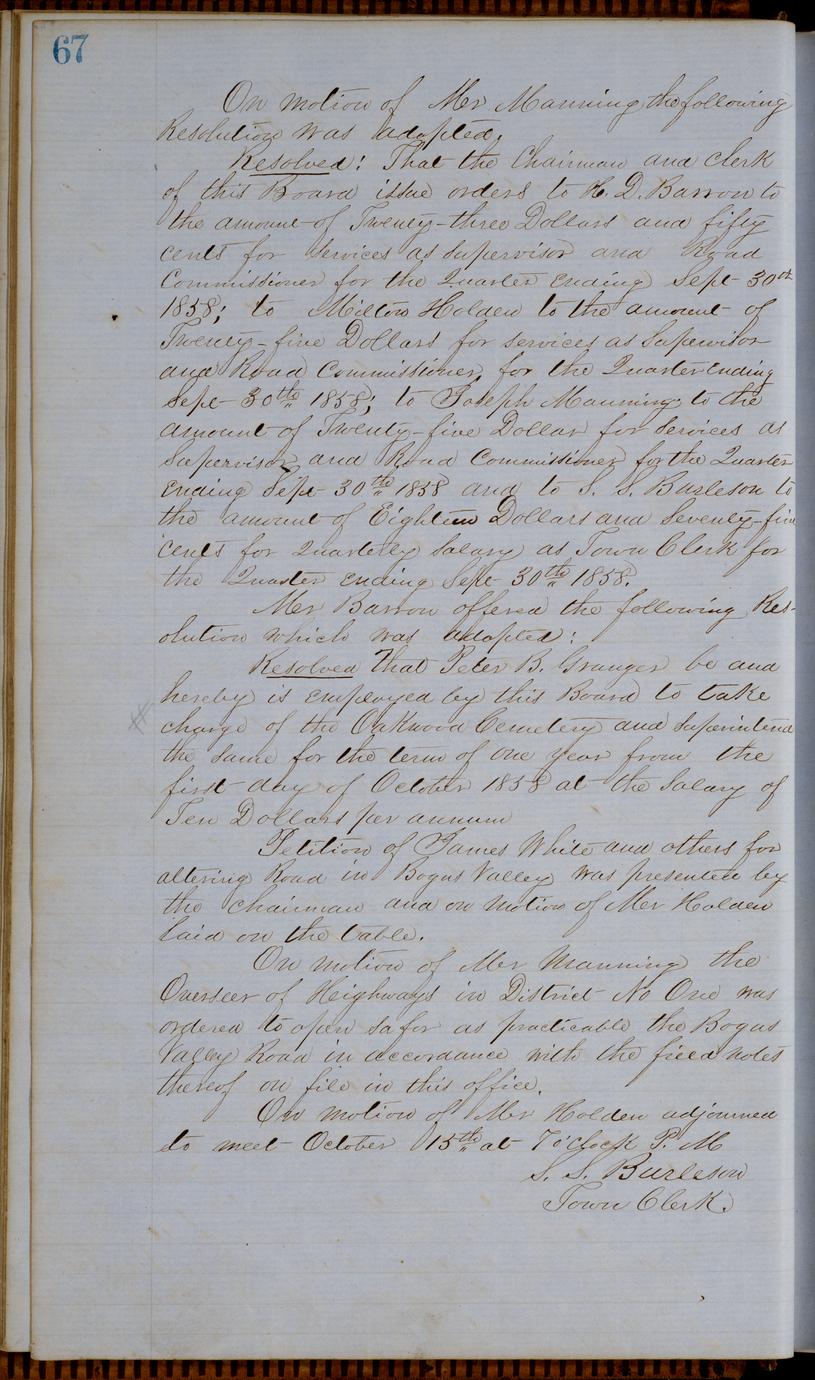 67
On motion of Mr Manning the following
Resolution was adopted.
Resolved: That the Chairman and Clerk
of this Board issue orders to H. D. Barron to
the amount of Twenty-three Dollars and fifty
cents for services as Supervisor and Road
Commissioner for the Quarter ending Sept 30th
1858; to Milton Holden to the amount of
Twenty-five Dollars for services as Supervisor
and Road Commissioner for the Quarter ending
Sept 30th 1858; to Joseph Manning to the
amount of Twenty-five Dollar for Services as
Supervisor and Road Commissioner for the Quarter
ending Sept 30th 1858 and to S. S. Burleson to
the amount of Eighteen Dollars and Seventy-five
cents for Quarterly Salary as Town Clerk for
the Quarter ending Sept 30th 1858.
Mr Barron offered the following Res-
olution which was adopted:
Resolved That Peter B. Granger be and
hereby is employed by this Board to take
charge of the Oakwood Cemetery and superintend
the same for the term of one year from the
first day of October 1858 at the Salary of
Ten Dollars per annum
Petition of James White and others for
altering Road in Bogus Valley was presented by
the Chairman and on motion of Mr Holden
laid on the table.
On motion of Mr Manning the
Overseer of Heighways in District No One was
ordered to open so far as practicable the Bogus
Valley Road in accordance with the field notes
thereof on file in this office.
On motion of Mr Holden adjourned
to meet October 15th at 7 o'clock P. M
S. S. Burleson
Town Clerk.